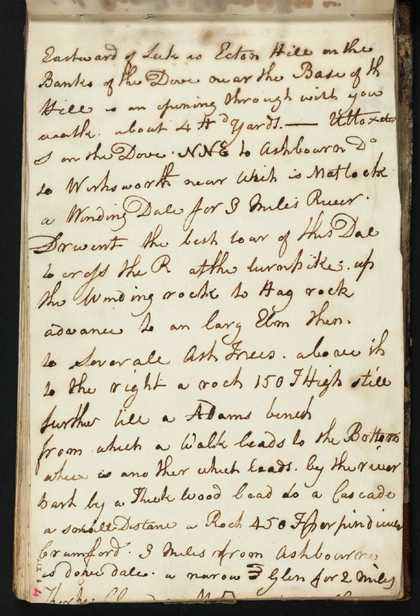 Eastward of Leek is Ecton Hill on the
Banks of the Dove near the Base of th
Hill is an opening through wich you
walk about 4 Hd Yards. — Uttoxeter
S on the Dove. NNE to Ashbourn Do
to Wirksworth near Wich is Matlock
a Winding Dale for 3 Miles River.
Drwent the best tour of this Dale
to cross the R at the turnpike. up
the Winding rock to Hag rock
advance to an larg Elm then.
to Severale Ash Trees. above ith
to the right a rock 150 F High still
further till a Adams bench
from which a Walk leads to the Bottom
where is another which leads. by the river
hark by a Thick Wood lead to a Cascade
a small Distane a Rock 450 F perpindiculer
Crumford. 3 Miles from Ashbourne
is dove dale. a narrow Glen for 2 Miles